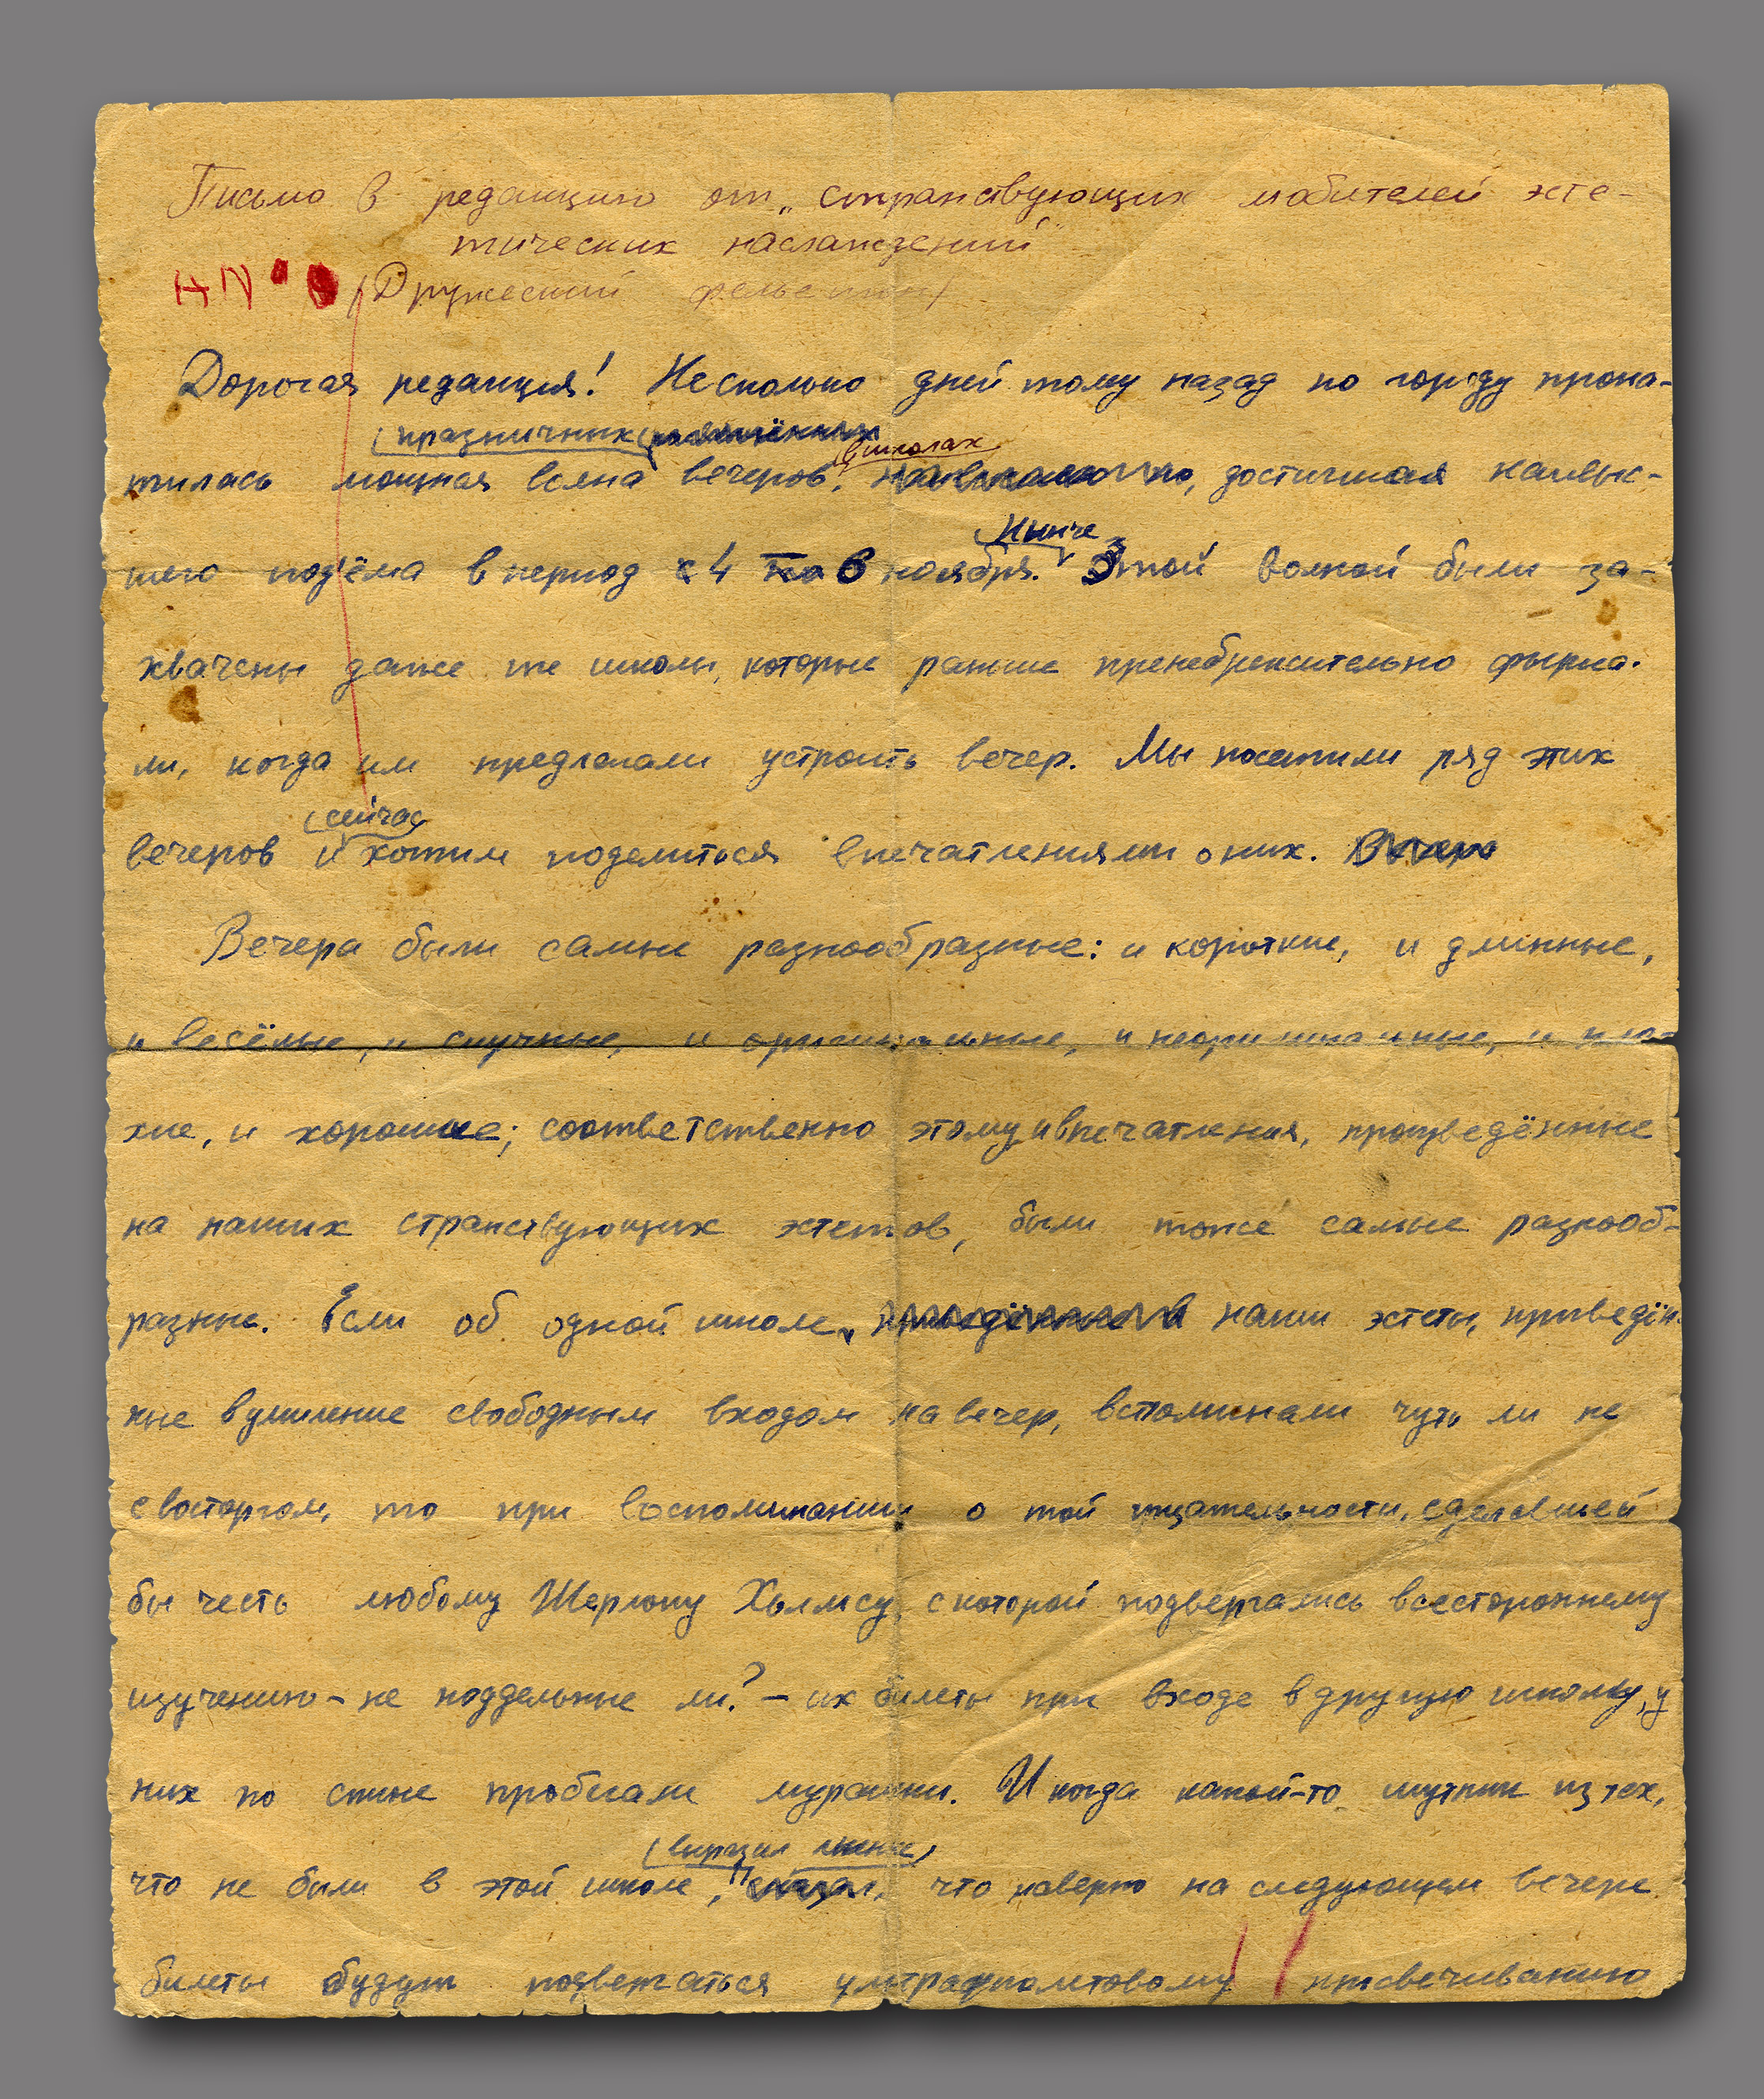 Письмо в редакцию от „странствующих любителей эсте-
тических наслаждений"
(Дружеский фельетон)
Дорогая редакция! Несколько дней тому назад по городу прока-
(праздничных
(в школах
тилась мощная волна вечеров, достигшая наивыс-
(Нынче
шего подъёма в период с 4 по 6 ноября. Этой волной были за-
хвачены даже те школы, которые раньше пренебрежительно фырка-
ли, когда им предлагали устроить вечер. Мы посетили ряд этих
(сейчас
вечеров и хотим поделиться впечатлениями о них.
Вечера были самые разнообразные: и короткие, и длинные,
и весёлые, и скучные, и оригинальные, и неоригинальные, и пло-
хие, и хорошие; соответственно этому и впечатления, произведённые
на наших странствующих эстетов, были тоже самые разнооб-
разные. Если об одной школе, наши эстеты, приведён-
ные в умиление свободным входом на вечер, вспоминали чуть ли не
с восторгом, то при воспоминании о той тщательности, сделавшей
бы честь любому Шерлоку Холмсу, с которой подвергались всестороннему
изучению – не поддельные ли? – их билеты при входе в другую школу, у
них по спине пробегали мурашки. И когда какой-то шутник из тех,
(выразил мнение)
что не были в этой школе, что наверно на следующем вечере
билеты будут подвергаться ультрафиолетовому просвечиванию